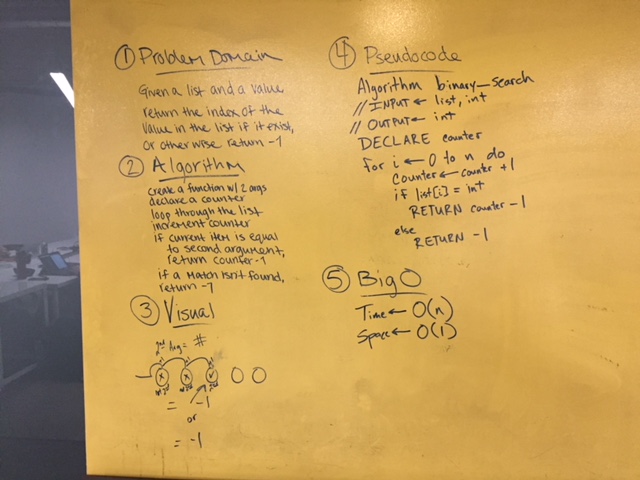 ① Problem Domain
Given a list and a value
return the index of the
value in the list if it exist,
or otherwise return -1
② Algorithm
create a function w/ 2 args
declare a counter
loop through the list
increment counter
if current item is equal
to second argument,
return counter -1
if a match isn't found,
return -1
③ Visual
2nd Arg = #
x x ✓
= -1
or
= -1
④ Pseudocode
Algorithm binary_search
// INPUT ← list, int
// OUTPUT ← int
DECLARE counter
for i ← 0 to n do
counter ← counter +1
if list[i] = int
RETURN counter -1
else
RETURN -1
⑤ Big O
Time ← O(n)
Space ← O(1)